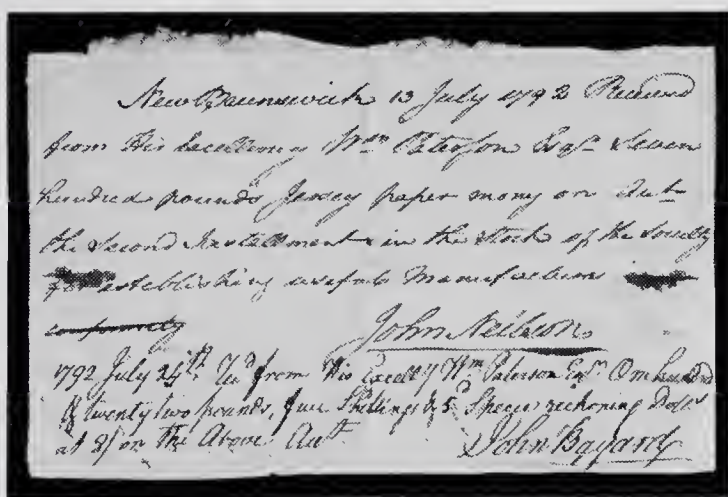 New Brunswick 13 July 1792 Received
from His Excellency Wm Paterson Esqr Seven
hundred pounds Jersey paper mony on Act
the Second Installment in the Stock of the Society
for establishing usefull Manufactures
conformity
John Neilson
1792 July 24th Recd from His Excelly Wm Paterson Esqr One hundred
& twenty two pounds, five Shillings & 5d Specie reckoning Dolls
at 8/ on the Above Act
John Bayard